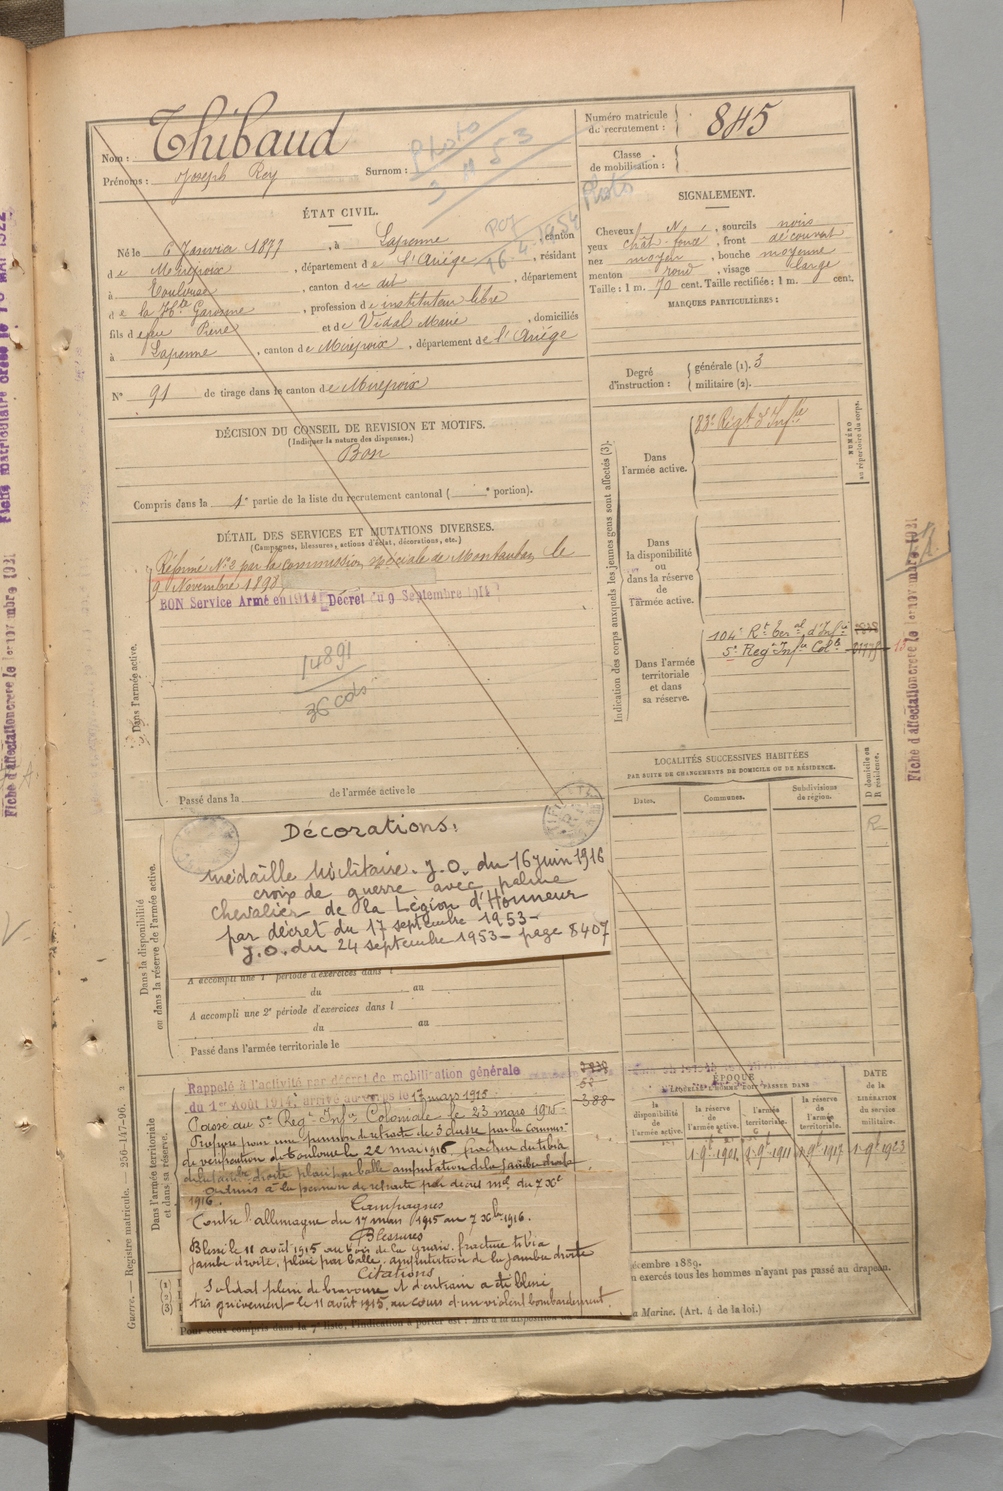 Nom : Thibaud
Prénoms : Joseph Rey Surnom :
Photo
3 53
Numéro matricule
du recrutement : 845
Classe
de mobilisation :
ÉTAT CIVIL.
Né le 6 Janvier 1877, à Lapenne, canton
de Mirepoix, département de l'Ariège, résidant
à Toulouse, canton du dit, département
de la Hte Garonne, profession de instituteur libre
fils de feu Pierre et de Vidal Marie, domiciliés
à Lapenne, canton de Mirepoix, département de l'Ariége
16.4.1954 Photo
SIGNALEMENT.
Cheveux, sourcils noirs
yeux chât. foncé, front découvert
nez moyen, bouche moyenne
menton rond, visage large
Taille : 1 m. 70 cent. Taille rectifiée : 1 m. cent.
MARQUES PARTICULIÈRES :
N° 91 de tirage dans le canton de Mirepoix
Degré
d'instruction :
générale (1). 3
militaire (2).
DÉCISION DU CONSEIL DE REVISION ET MOTIFS.
(Indiquer la nature des dispenses.)
Bon
Compris dans la 1e partie de la liste du recrutement cantonal ( e portion).
DÉTAIL DES SERVICES ET MUTATIONS DIVERSES.
(Campagnes, blessures, actions d'éclat, décorations, etc.)
Réformé N° 2 par la Commission spéciale de Montauban le
9 Novembre 1898
BON Service Armé en 1914 Décret du 9 Septembre 1914
14891
36 cds
Dans l'armée active.
Passé dans la de l'armée active le
Indication des corps auxquels les jeunes gens sont affectés (3).
Dans
l'armée active.
83e Régt d'Infie
NUMÉRO
au répertoire du corps.
Dans
la disponibilité
ou
dans la réserve
de
l'armée active.
Dans l'armée
territoriale
et dans
sa réserve.
104e Rt Teral d'Infie
5e Regt Infie Colle
LOCALITÉS SUCCESSIVES HABITÉES
PAR SUITE DE CHANGEMENTS DE DOMICILE OU DE RÉSIDENCE.
Dates.
Communes.
Subdivisions
de région.
D domicile ou
R résidence.
R
Décorations:
médaille Militaire. J.O. du 16 juin 1916
croix de guerre avec palme
chevalier de la Légion d'Honneur
par décret du 17 septembre 1953 -
J.O. du 24 septembre 1953 - page 8407
Dans la disponibilité
ou dans la réserve de l'armée active.
A accompli une 1e période d'exercices dans l
du au
A accompli une 2e période d'exercices dans l
du au
Passé dans l'armée territoriale le
Dans l'armée territoriale
et dans sa réserve.
Rappelé à l'activité par décret de mobilisation générale
du 1er Août 1914, arrivé au corps le 17 mars 1915
Passé au 5e Regt Infie Coloniale le 23 mars 1915 -
Proposé pour une pension de retraite de 3e classe par la commion
de vérification de Toulouse le 22 mai 1916. fracture du tibia
de la jambe droite plaie par balle amputation de la jambe droite
Admis à la pension de retraite par décret mel du 7 Xe
1916.
Campagnes
Contre l'allemagne du 17 mars 1915 au 7 Xbre 1916.
Blessures
Blessé le 11 août 1915 au bois de la Grurie. fracture tibia
jambe droite, plaie par balle. amputation de la jambe droite
Citations
Soldat plein de bravoure et d'entrain a été blessé
très grièvement le 11 août 1915, au cours d'un violent bombardement.
ÉPOQUE
À LAQUELLE L'HOMME DOIT PASSER DANS
la
disponibilité
de
l'armée active.
la réserve
de
l'armée active.
l'armée
territoriale.
la réserve
de
l'armée
territoriale.
DATE
de la
LIBÉRATION
du service
militaire.
1-9bre 1901
1-9bre 1923
décembre 1889.
n exercés tous les hommes n'ayant pas passé au drapeau.
a Marine. (Art. 4 de la loi.)
Guerre. — Registre matricule. 256-147-96.
Fiche d'affectation créée le 1er novembre 1931
Fiche d'affectation créée le 1er novembre 1931